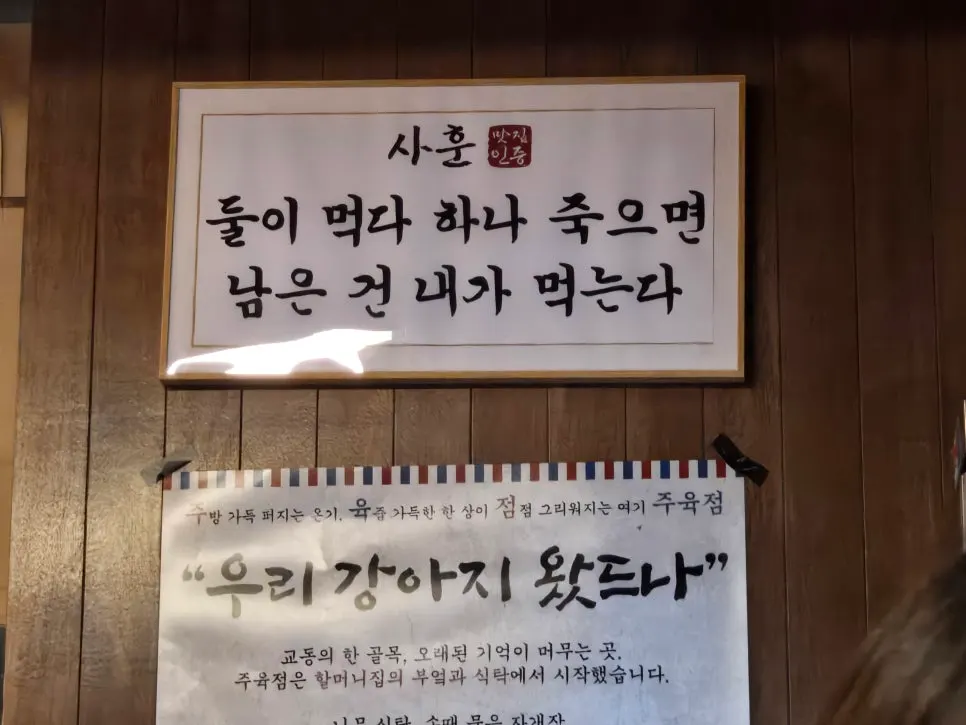 사훈 맛집
인증
둘이 먹다 하나 죽으면
남은 건 내가 먹는다
주방 가득 퍼지는 온기, 육즙 가득한 한 상이 점점 그리워지는 여기 주육점
“우리 강아지 왔드나”
교동의 한 골목, 오래된 기억이 머무는 곳.
주육점은 할머니집의 부엌과 식탁에서 시작했습니다.
나무 식탁, 손때 묻은 자개장